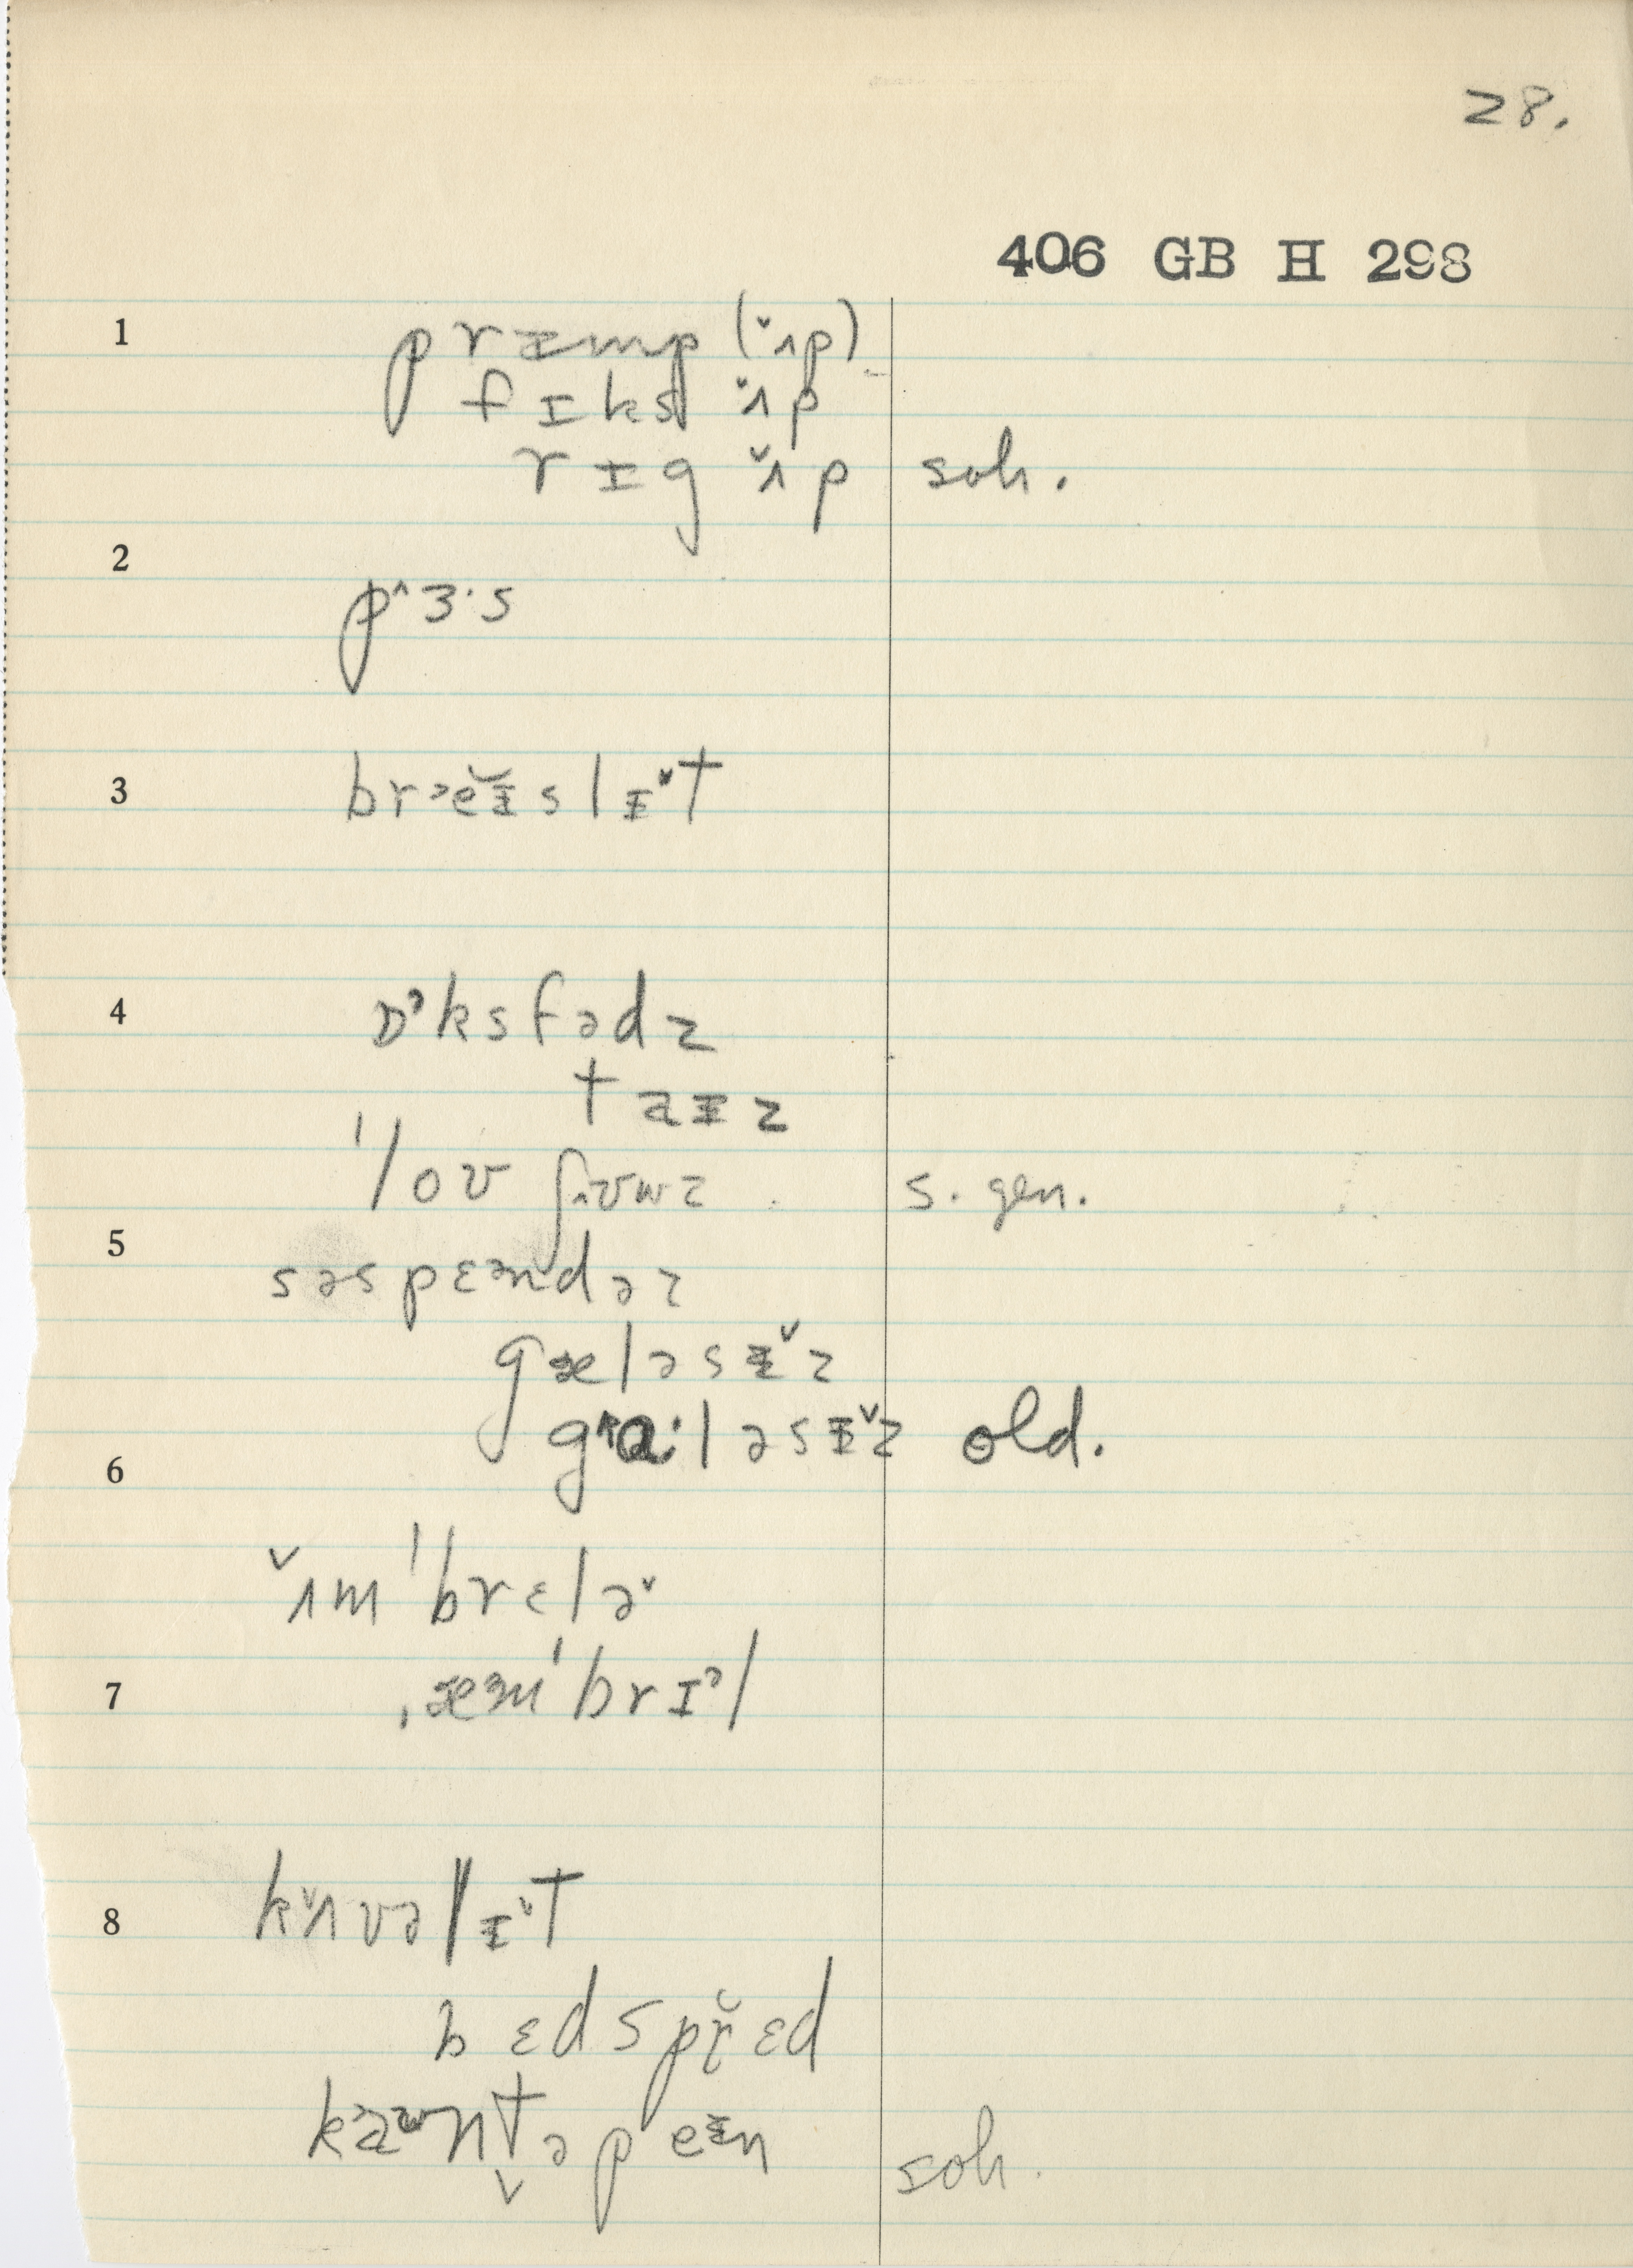 28.
406 GB H 298
1 prɪmp (ˇʌp)
fɪks ˇʌp
rɪg ˇʌp soh.
2
pˆɜ·s
3 brᵊeɪ̆slɪˇt
4 ɒᵊksfədz
taɪz
ˈloʊ s. gen.
5
səspɛᵊndəz
gæləsɪˇz
gˆɑ·ləsɪˇz old.
6
ˇʌmˈbrɛləˇ
7 ˌæᵊmˈbrɪᵊl
8 kˇʌvəlɪˇt
bɛdspr̆ɛd
kᵊaᵘntəpeɪ̆n soh.